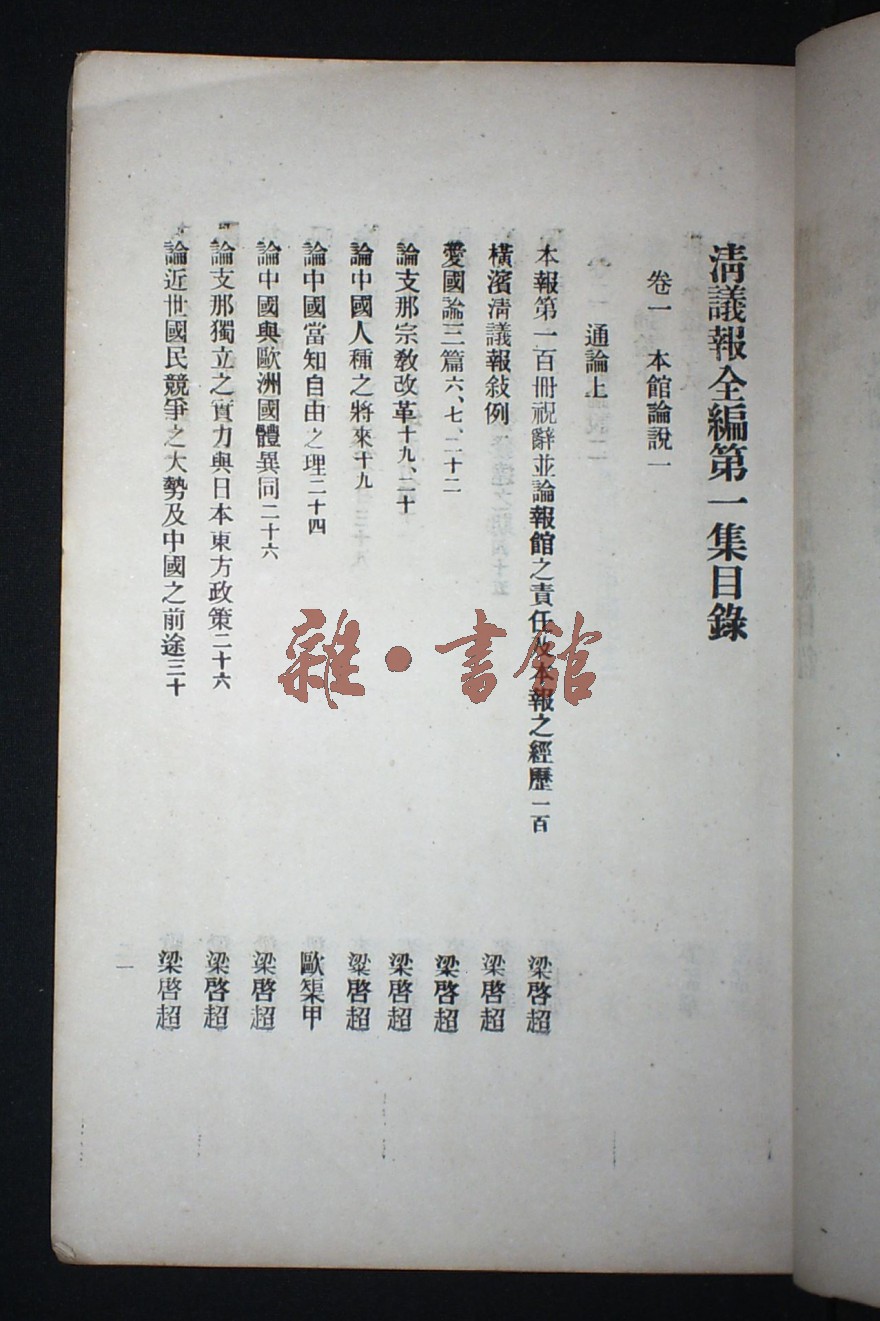 清議報全編第一集目錄
卷一 本館論說一
通論上
本報第一百冊祝辭並論報館之責任及本報之經歷一百 梁啓超
橫濱清議報敍例一 梁啓超
愛國論三篇六、七、二十二 梁啓超
論支那宗教改革十九、二十 梁啓超
論中國人種之將來十九 梁啓超
論中國當知自由之理二十四 歐榘甲
論中國與歐洲國體異同二十六 梁啓超
論支那獨立之實力與日本東方政策二十六 梁啓超
論近世國民競爭之大勢及中國之前途三十 梁啓超
一
雜·書館